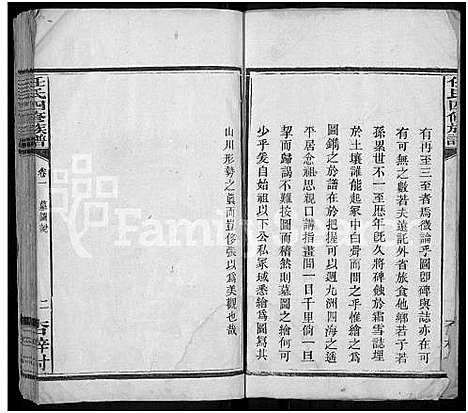 任氏四修族譜
有再至三至者焉微論乎圖即碑與誌亦在可
有可無之數若夫遠託外省旅食他鄉若子若
孫累世不一至悠年既久將碑蝕於霜雪誌埋
於土壤誰能起冢中白骨而問之乎惟繪之為
圖鐫之於譜在於把握可以週九洲四海之遙
平居念祖思口講指畫間一日千里倘一旦
挈而歸謁不難按圖而稽然則墓圖之繪何可
少乎爰自始祖以下公私冢域悉繪為圖寫其
山川形勢之真而豈侈張以為美觀也哉
任氏四修族譜
卷一
墓圖說
二